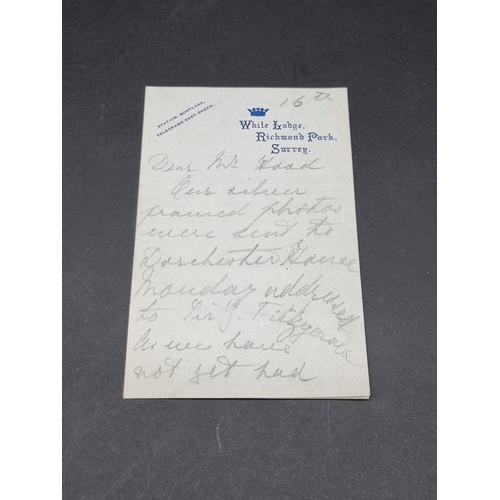 16th
STATION, MORTLAKE.
TELEGRAMS-EAST-SHEEN.
White Lodge,
Richmond Park,
Surrey.
Dear Mr Hood
Our silver
framed photos
were sent to
Dorchester House
Monday addressed
to Sir G. Fitzgerald
As we have
not yet had